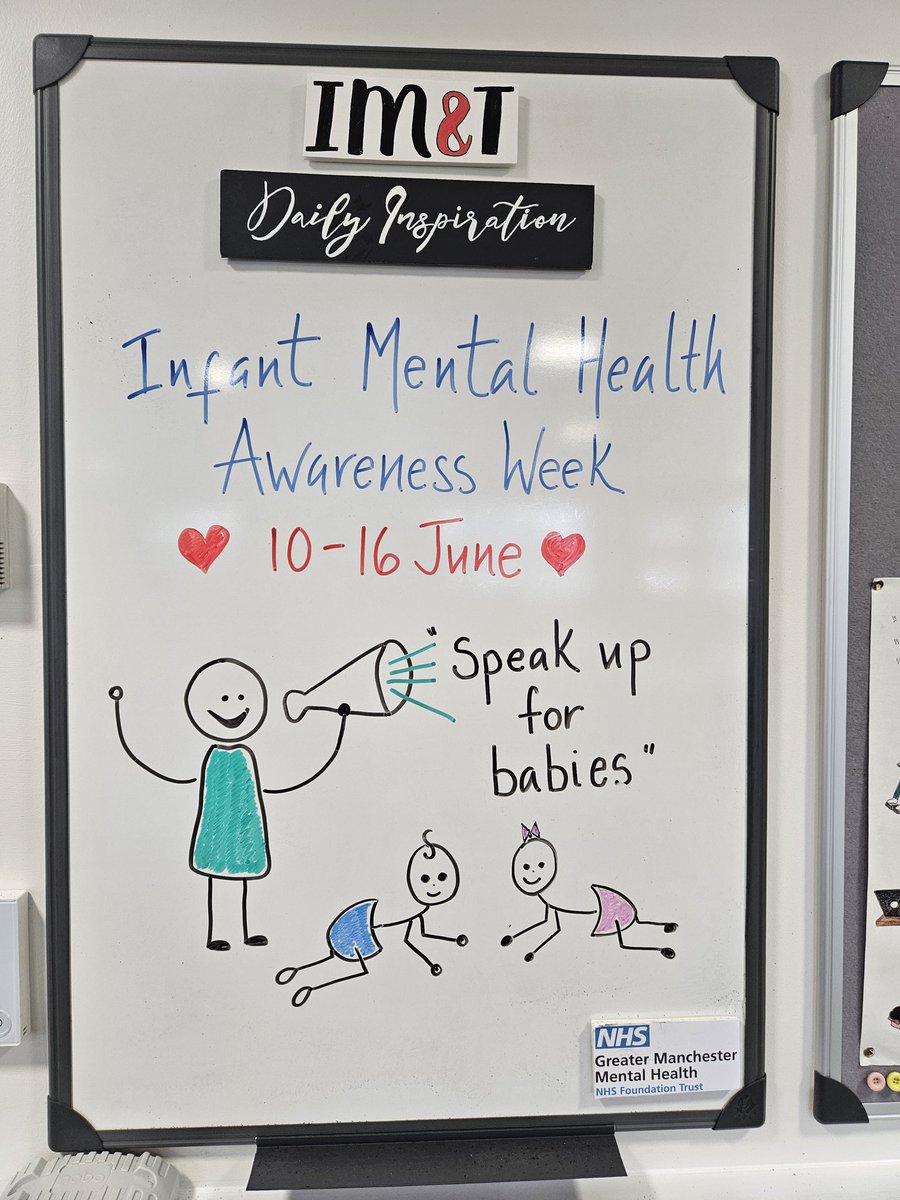 IM&T
Daily Inspiration
Infant Mental Health
Awareness Week
10-16 June
"Speak up
for
babies"
NHS
Greater Manchester
Mental Health
NHS Foundation Trust